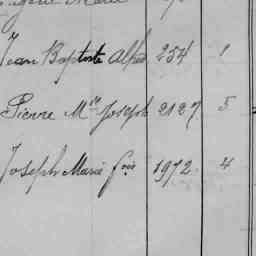 Marie
Jean Baptiste Alfred 254 1
Pierre Mie Joseph 2127 5
Joseph Marie fois 1972 4